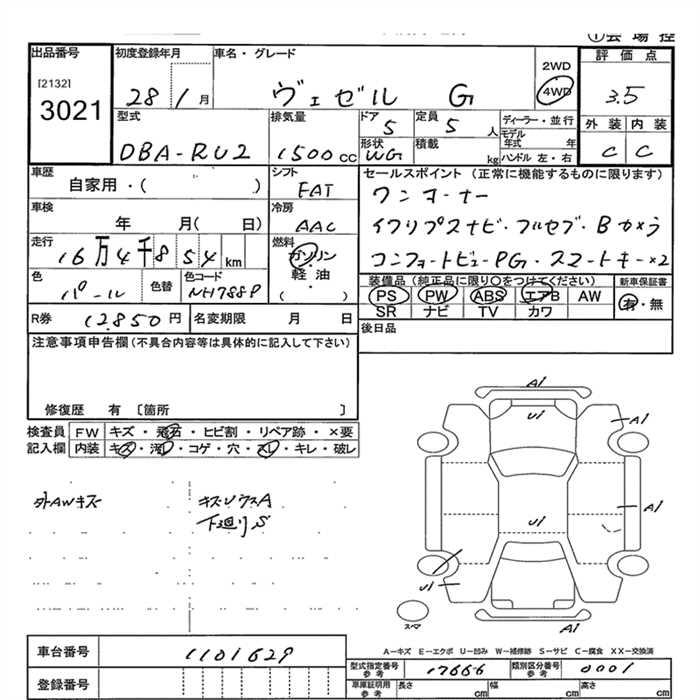 出品番号 初度登録年月 車名・グレード 2WD 評価点
[2132] 4WD
3021 28 / 1 月 ヴェゼル G 3.5
型式 排気量 ドア 定員 ディーラー・並行 外装 内装
DBA-RU2 1500 CC 5 5 人 モデル年式 年 C C
形状 WG 積載 kg ハンドル 左・右
車歴 自家用・( ) シフト FAT セールスポイント (正常に機能するものに限ります)
車検 年 月( 日) 冷房 AAC ワンオーナー
走行 16万4千854 km 燃料 ガソリン・軽油・( )
色 パール 色替 色コード NH788P コンフォートビューPG・スマートキー×2
装備品 (純正品に限り○をつけてください) 新車保証書
PS PW ABS エアB AW 有・無
SR ナビ TV カワ
R券 12,850 円 名変期限 月 日 後日品
注意事項申告欄 (不具合内容等は具体的に記入して下さい)
修復歴 有 [箇所 ]
検査員記入欄 FW キズ・飛石・ヒビ割・リペア跡・×要
内装 キズ・汚レ・コゲ・穴・スレ・キレ・破レ
外AWキズ
下廻りS
A1
U1
A1
A1
U1
U1
A1
スペア
A-キズ E-エクボ U-凹み W-補修跡 S-サビ C-腐食 XX-交換済
車台番号 1101629
型式指定番号 参考 17666 類別区分番号 参考 0001
登録番号 車庫証明用 参考 長さ cm 幅 cm 高さ cm